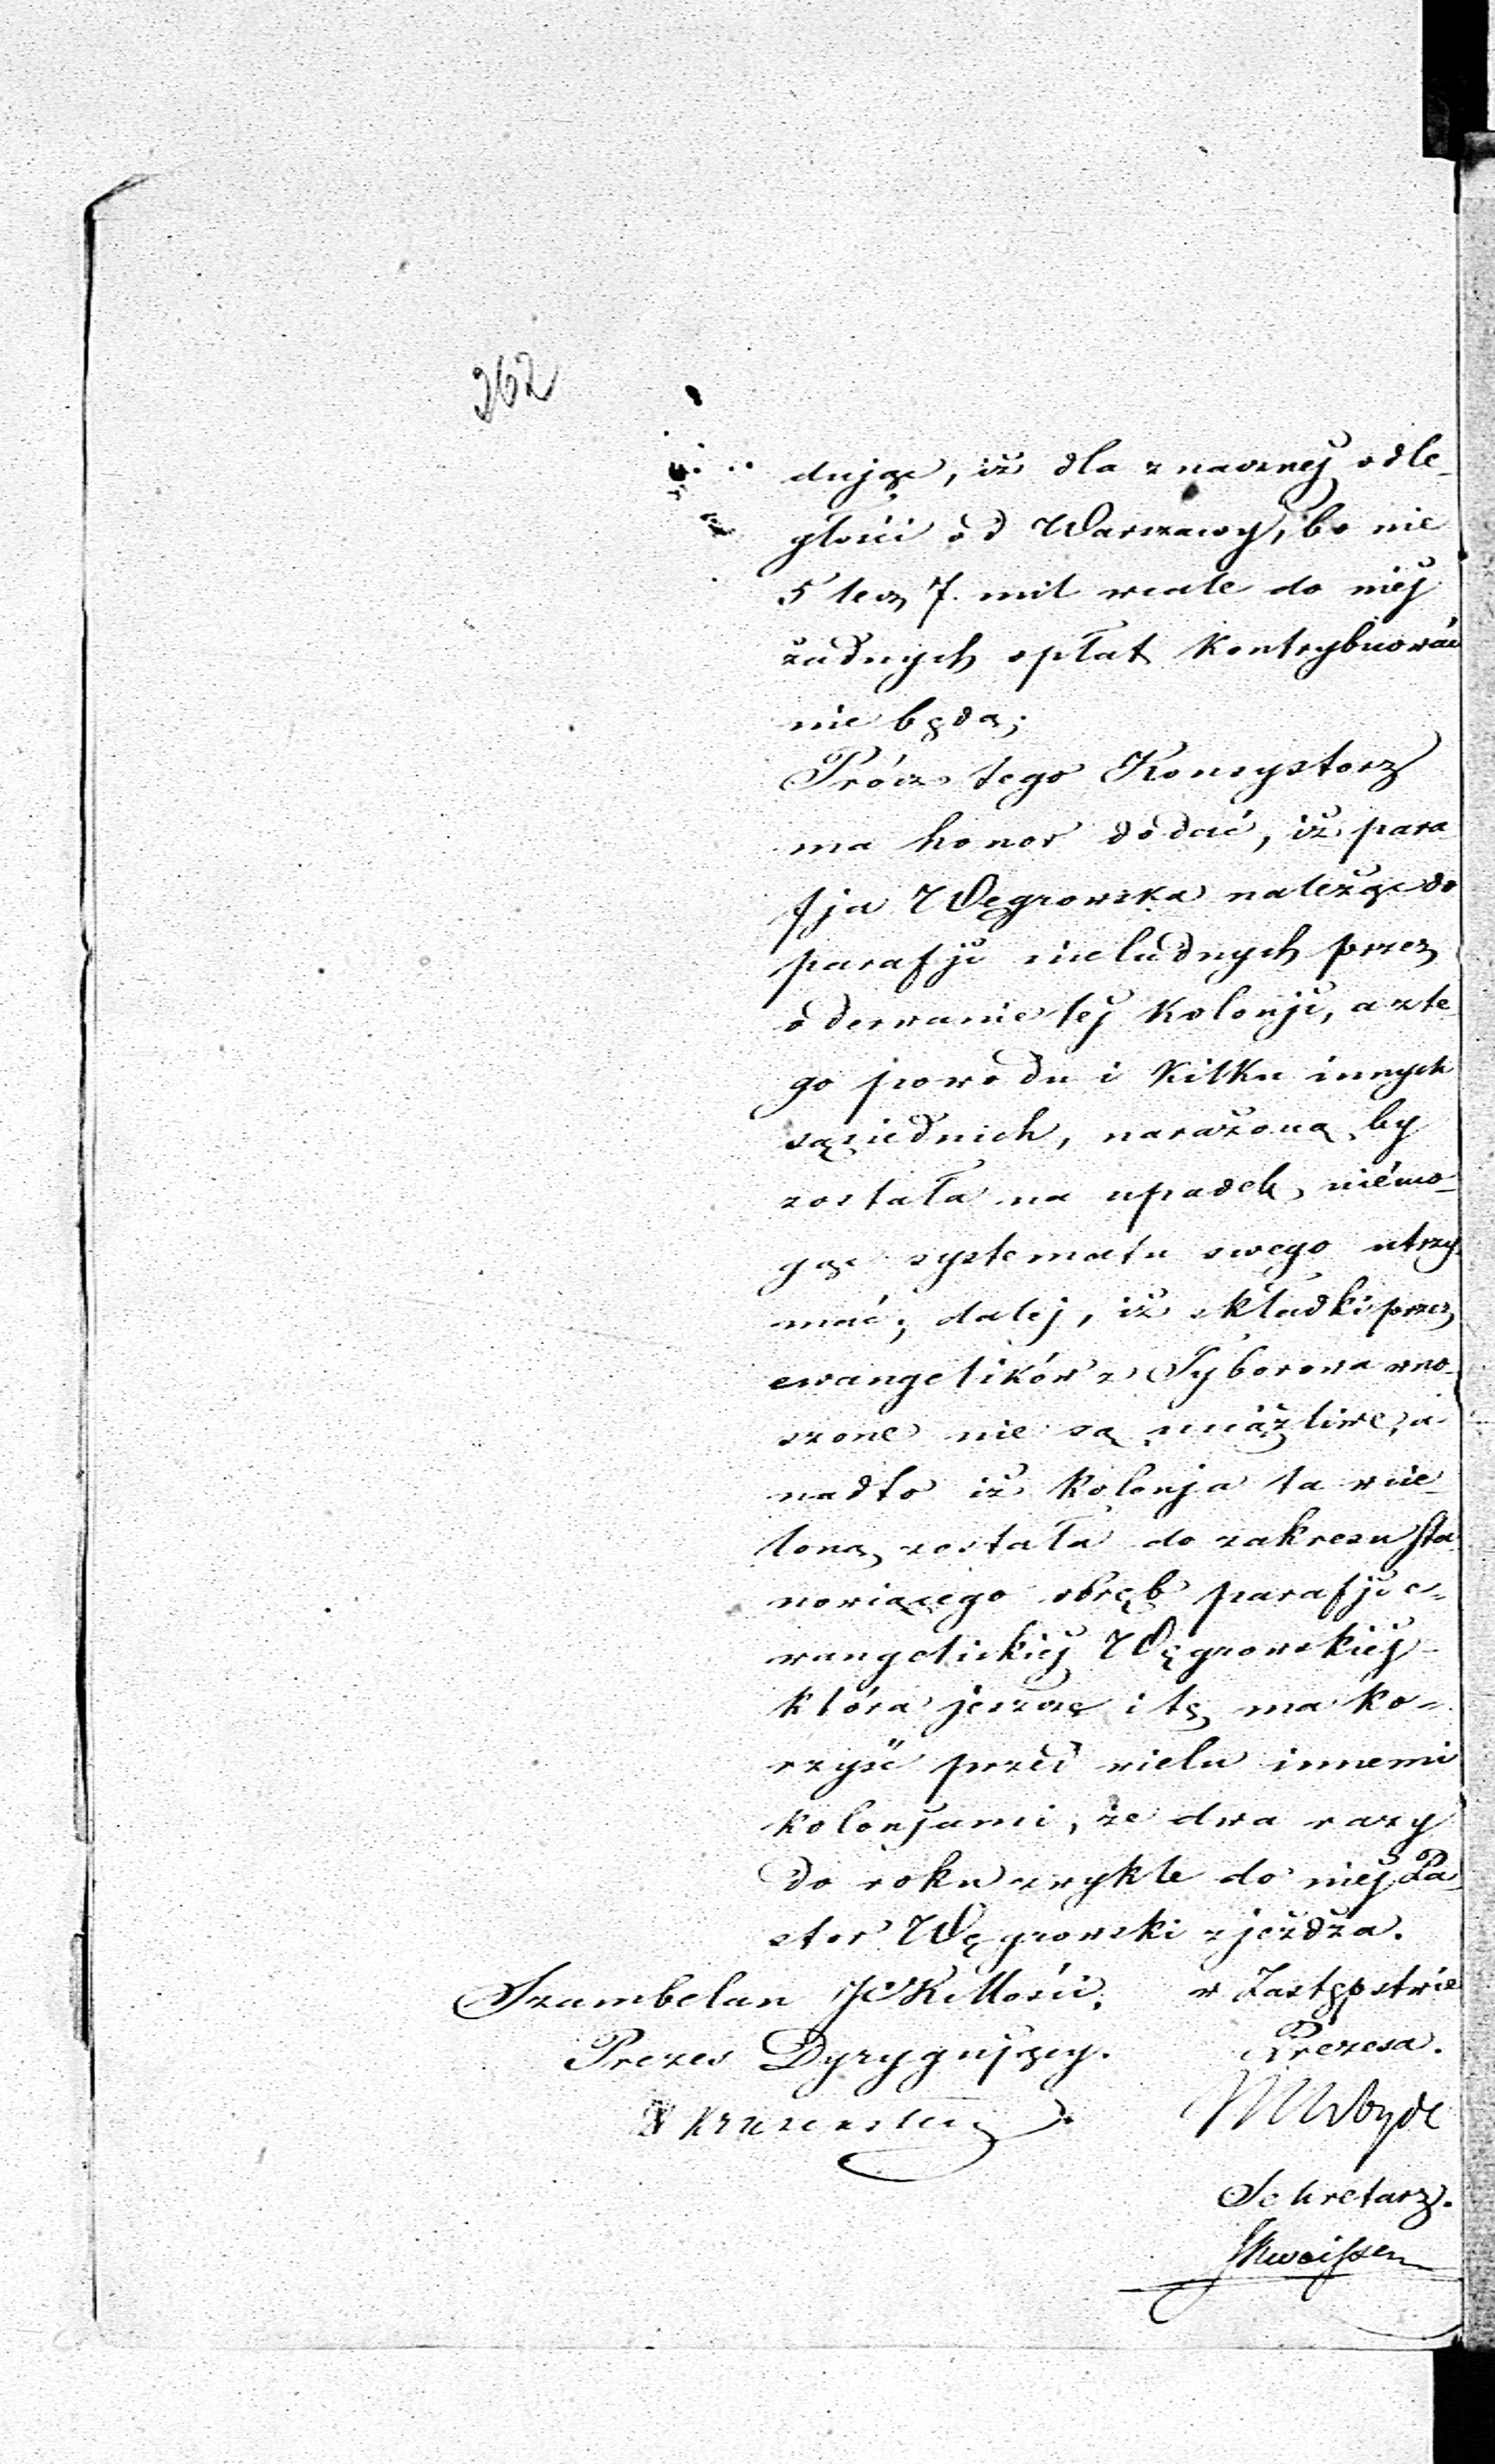 262
dując, iż dla znacznej odle-
głości od Warszawy, bo nie
5 lecz 7. mil wcale do niéj
żadnych opłat kontrybuować
nie będą;
Prócz tego Konsystorz
ma honor dodać, iż para
fja Węgrowska należąc do
parafji nieludnych przez
oderwanie téj kolonji, a z te
go powodu i kilku innych
sąsiednich, narażoną by
została na upadek, niémo-
gąc systematu swego utrzy-
mać; daléj, iż składki przez
ewangelików z Tyborowa wno-
szone nie są uciążliwe, a
nadto iż kolonja ta wcie-
loną została do zakresu sta
nowiącego obręb parafji e-
wangelickiéj Węgrowskiéj
która jeszcze i tę ma ko-
rzyść przed wielu innemi
kolonjami, że dwa razy
do roku zwykle do niéj Pa
stor Węgrowski zjeżdża.
Szambelan JCKMości, w Zastępstwie
Prezes Dyrygujący. Prezesa.
Sekretarz.